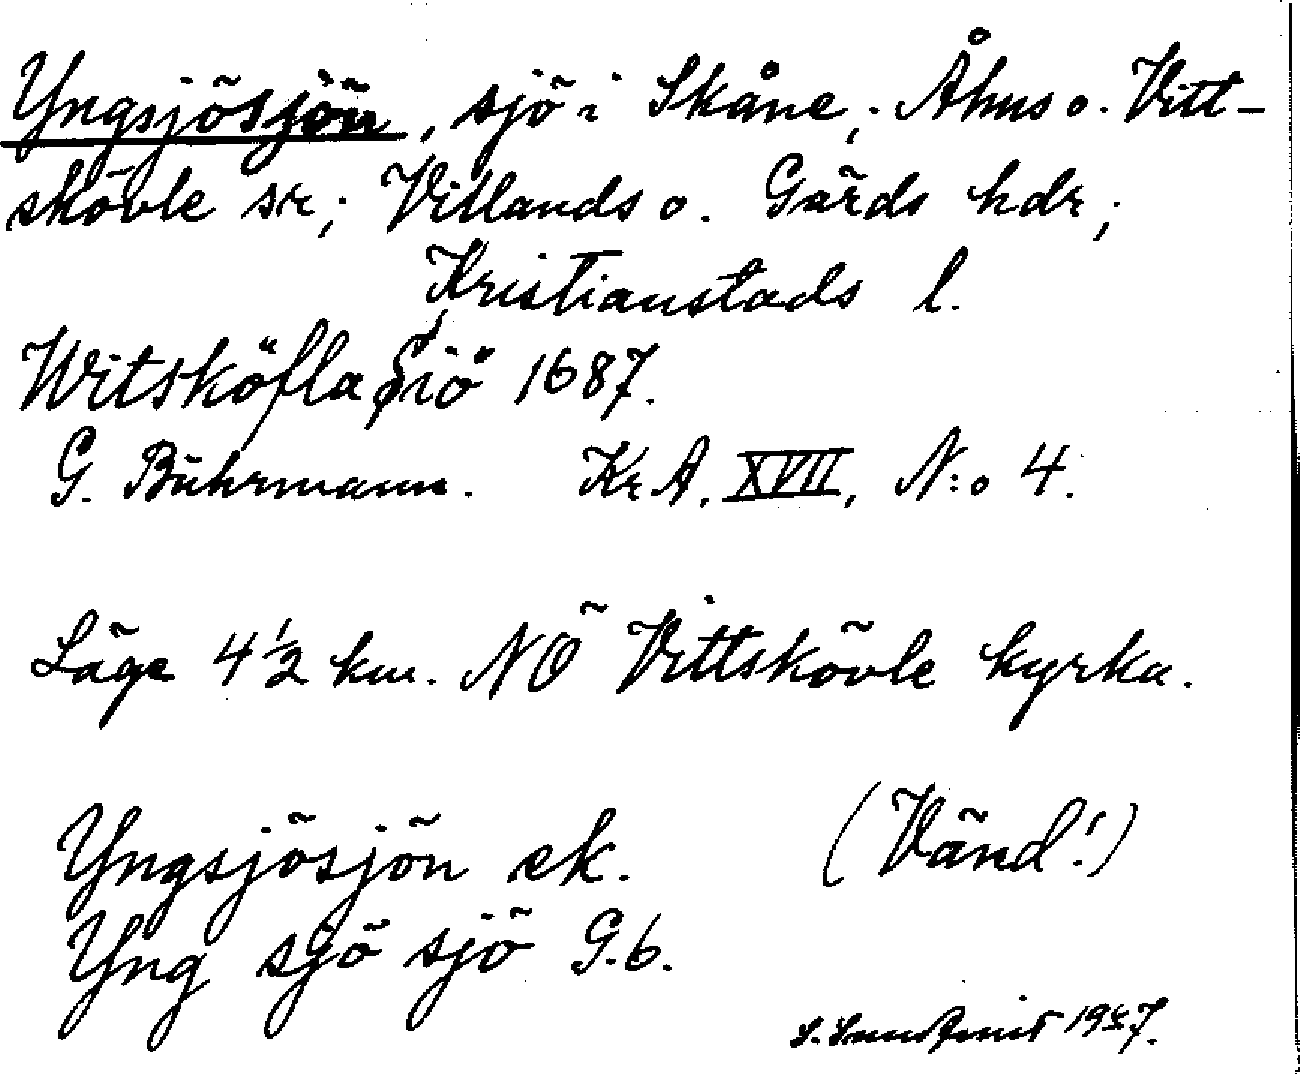 Yngsjösjön, sjö i Skåne; Åhus o. Vitt-
skövle sr; Villands o. Gärds hdr;
Kristianstads l.
Witsköfla Siö 1687.
G. Buhrmann. Kr A. XVII, N:o 4.
Läge 4 1/2 km. NÖ Vittskövle kyrka.
Yngsjösjön ek. (Vänd!)
Yng sjö sjö G.b.
1947.